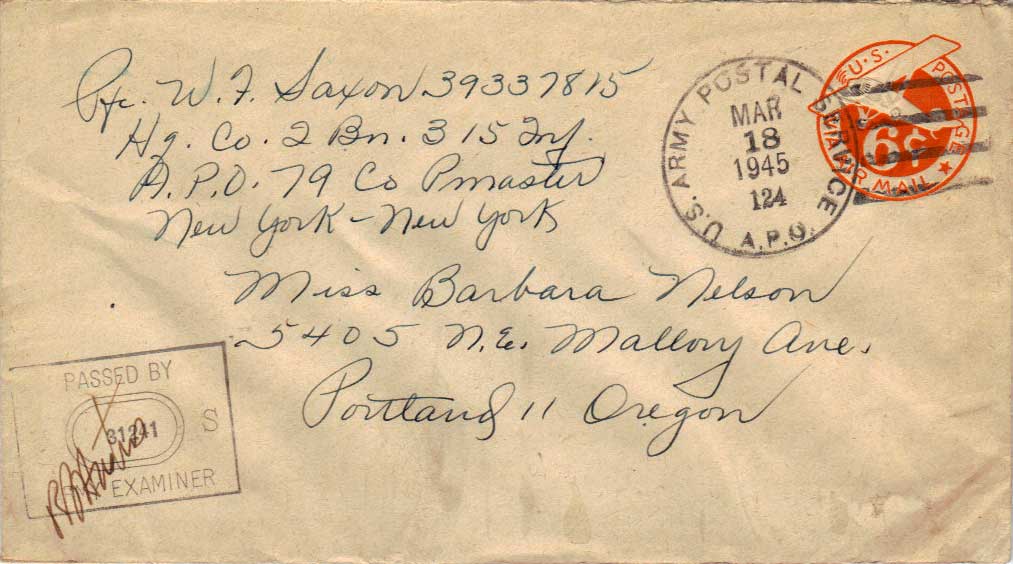 Pfc. W. F. Saxon 39337815
Hq. Co. 2 Bn. 315 Inf.
A.P.O. 79 Co Pmaster
New York - New York
U.S. ARMY POSTAL SERVICE
MAR
18
1945
124
A.P.O.
U.S. POSTAGE
6¢
AIR MAIL
Miss Barbara Nelson
5405 N.E. Mallory Ave.
Portland 11 Oregon
PASSED BY
31241 S
EXAMINER